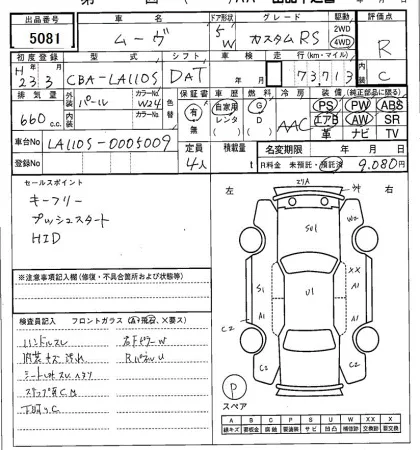 出品番号 車名 ドア形状 グレード 駆動 評価点
5081 ムーヴ 5W カスタムRS 2WD 4WD R C
初度登録 型式 シフト 車検 走行(km・マイル)
H 23.3 CBA-LA110S DAT 年 月 73713
排気量 外装 カラーNo. 内装 カラーNo. 色替 保証書 車歴 燃料 冷房 装備(純正部品に限る)
660 c.c. パール W24 有 無 自家用 レンタ G D AAC PS PW ABS
エアB AW SR
革 ナビ TV
車台No. LA110S-0005009 定員 積載量 名変期限 年 月 日
登録No. 4人 t R料金 未預託・預託済 9,080円
セールスポイント
キーフリー
プッシュスタート
HID
※注意事項記入欄(修復・不具合箇所および状態等)
検査員記入 フロントガラス(A+飛石、×要ス)
ハンドルスレ 右Fドアー W
内装キズ汚れ RパネルU
左 右
S41
U1
W2
XX
A1
S1
A1
C2
C2
C2
P
スペア
A B C P S U W X XX
線キズ 要鈑金 腐蝕 要塗装 サビ 凹凸 補修跡 要交換 交換跡